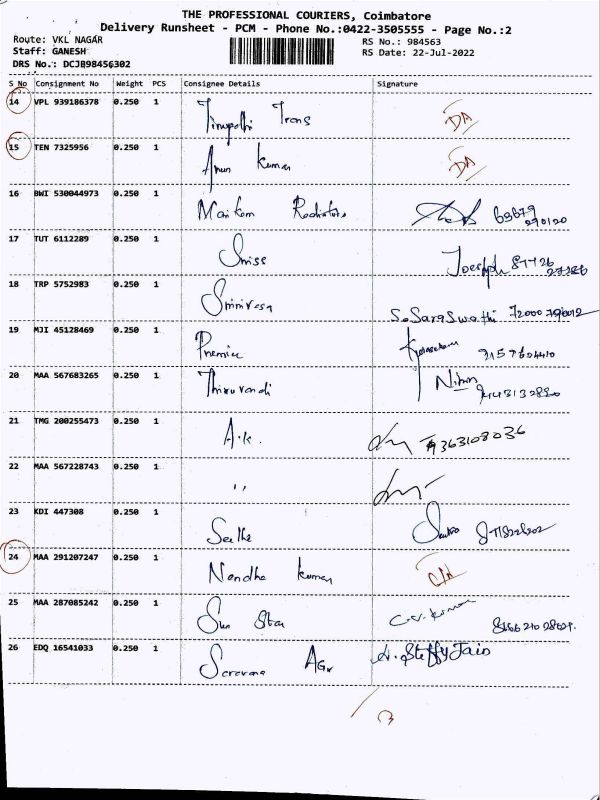 THE PROFESSIONAL COURIERS, Coimbatore
Delivery Runsheet - PCM - Phone No.:0422-3505555 - Page No.:2
Route: VKL NAGAR
Staff: GANESH
DRS No.: DCJB98456302
RS No.: 984563
RS Date: 22-Jul-2022
S No Consignment No Weight PCS Consignee Details Signature
14 VPL 939186378 0.250 1 Tirupathi Trans DA
15 TEN 7325956 0.250 1 Arun Kumar DA
16 BWI 530044973 0.250 1 Radiators
17 TUT 6112289 0.250 1
18 TRP 5752983 0.250 1 Srinivasa S.Saraswathi
19 MJI 45128469 0.250 1 Premier
20 MAA 567683265 0.250 1
21 TMG 200255473 0.250 1 A.K.
22 MAA 567228743 0.250 1 ,,
23 KDI 447308 0.250 1
24 MAA 291207247 0.250 1 Nandha Kumar
25 MAA 287085242 0.250 1 Sun Star C.V.Kumar
26 EDQ 16541033 0.250 1 A.Steffy Jain